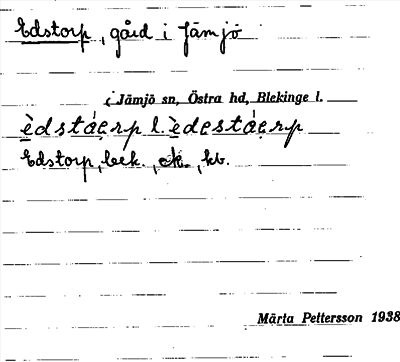 Edstorp, gård i Jämjö
i Jämjö sn, Östra hd, Blekinge l.
èdstáẹrp l. èdẹstáẹrp
Edstorp, bek., ek., kb.
Märta Pettersson 1938